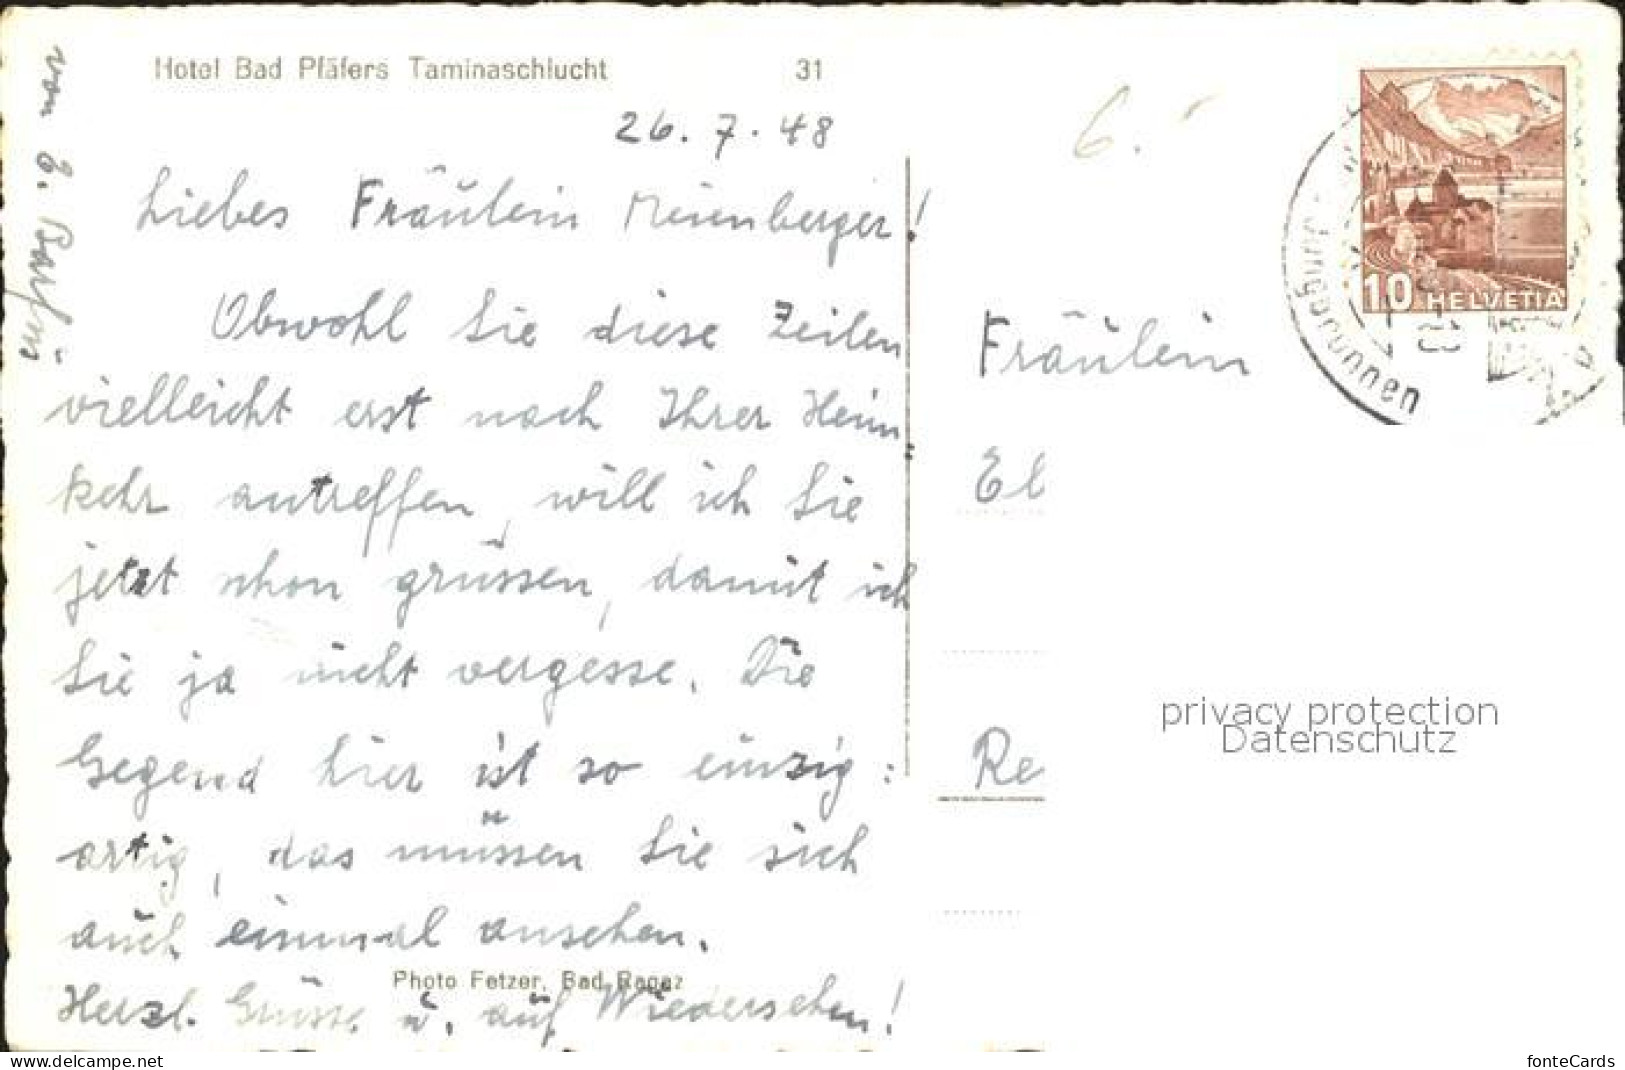 Hotel Bad Pfäfers Taminaschlucht 31
26. 7. 48
Liebes Fräulein Meienberger!
Obwohl Sie diese Zeilen
vielleicht erst nach Ihrer Heim-
kehr antreffen, will ich Sie
jetzt schon grüssen, damit ich
Sie ja nicht vergesse. Die
Gegend hier ist so einzig:
artig, das müssen Sie sich
auch einmal ansehen.
Photo Fetzer, Bad Ragaz
Herzl. Grüsse u. auf Wiedersehen!
von
6.-
10 HELVETIA
Fräulein
El
Re
privacy protection
Datenschutz
www.delcampe.net
fonteCards